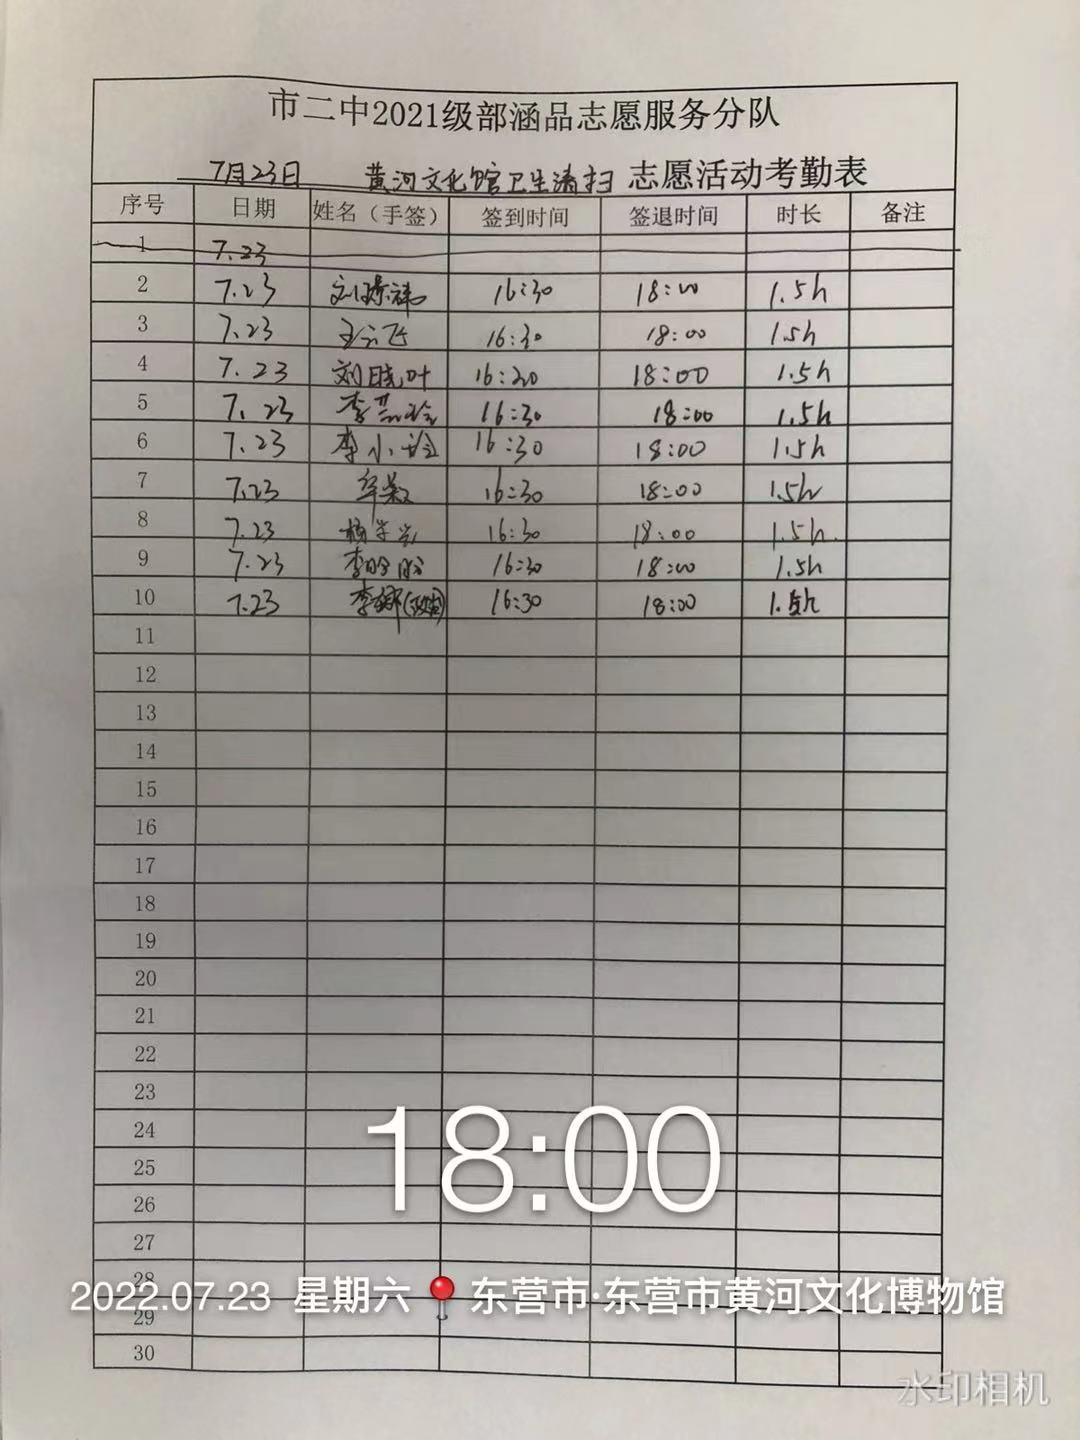 市二中2021级部涵品志愿服务分队
7月23日 黄河文化馆卫生清扫 志愿活动考勤表
序号 日期 姓名（手签） 签到时间 签退时间 时长 备注
1 7.23
2 7.23 刘璟祎 16:30 18:00 1.5h
3 7.23 王云飞 16:30 18:00 1.5h
4 7.23 刘晓叶 16:30 18:00 1.5h
5 7.23 李 16:30 18:00 1.5h
6 7.23 李小 16:30 18:00 1.5h
7 7.23 16:30 18:00 1.5h
8 7.23 杨 16:30 18:00 1.5h.
9 7.23 李 16:30 18:00 1.5h
10 7.23 李娜 16:30 18:00 1.5h
11
12
13
14
15
16
17
18
19
20
21
22
23
24
18:00
25
26
27
28
2022.07.23 星期六 东营市·东营市黄河文化博物馆
29
30
水印相机